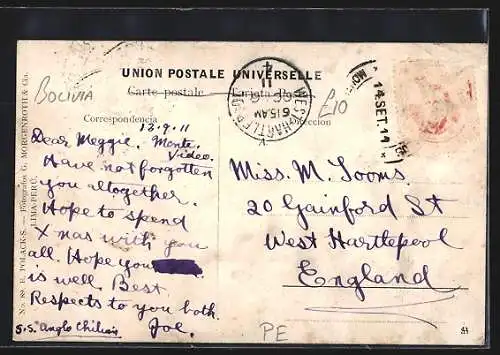 UNION POSTALE UNIVERSELLE
Carte postale
Tarjeta
BOLIVIA
£10
Correspondencia
Dirección
12.9.11
Monte
Video.
Dear Meggie.
Have not forgotten
you altogether.
Hope to spend
Xmas with you
all. Hope you
is well. Best
Respects to you both.
Joe.
S.S. Anglo Chilian
Miss. M. Tooms.
20 Gainford St
West Hartlepool
England
PE
WEST HARTLEPOOL
6.15AM
OC 6
11
14.SET.11
No. 89. E. POLACK-S. — Fotografos G. MORGENROTH & Co.
LIMA-PERÚ.